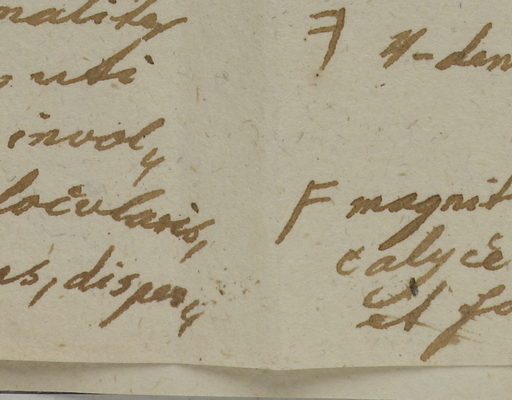 nality
uti
involy
locularis,
as, dispery
F
4-den
F magnit
calyce
et fo